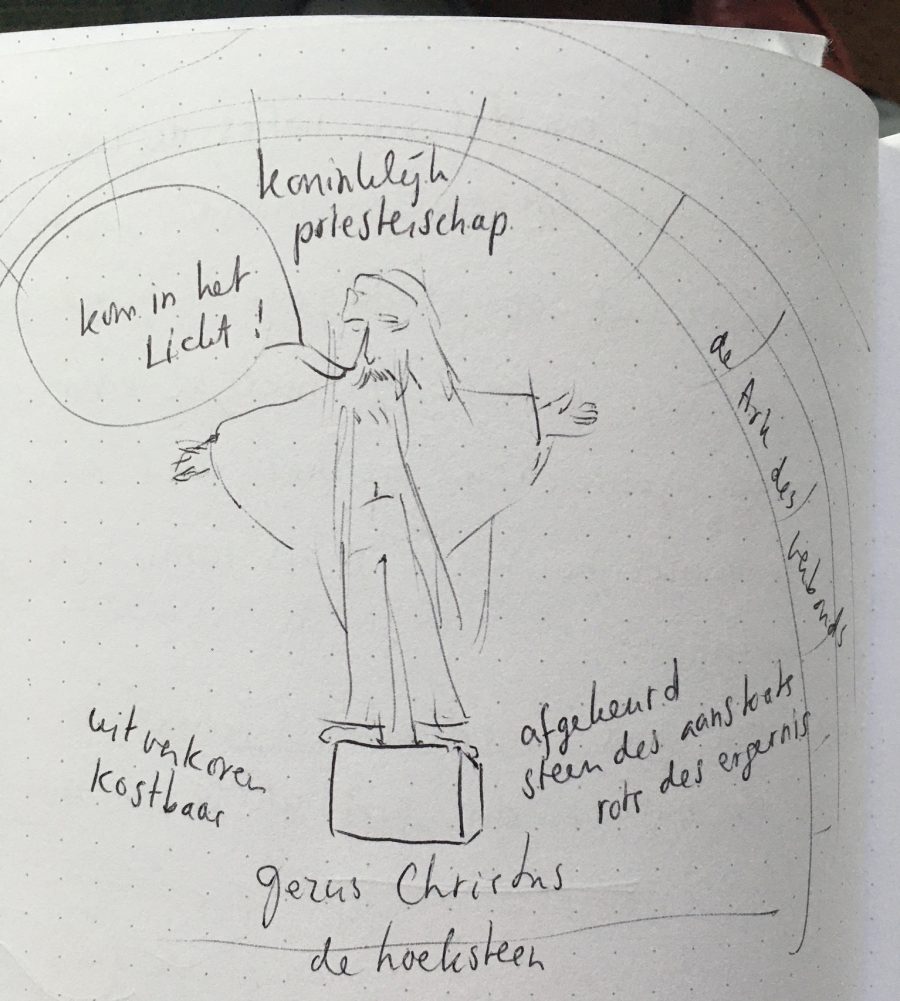 koninklijk
priesterschap
kom in het
Licht !
de Ark des Verbonds
uitverkoren
kostbaar
afgekeurd
steen des aanstoots
rots des ergernis
Jezus Christus
de hoeksteen